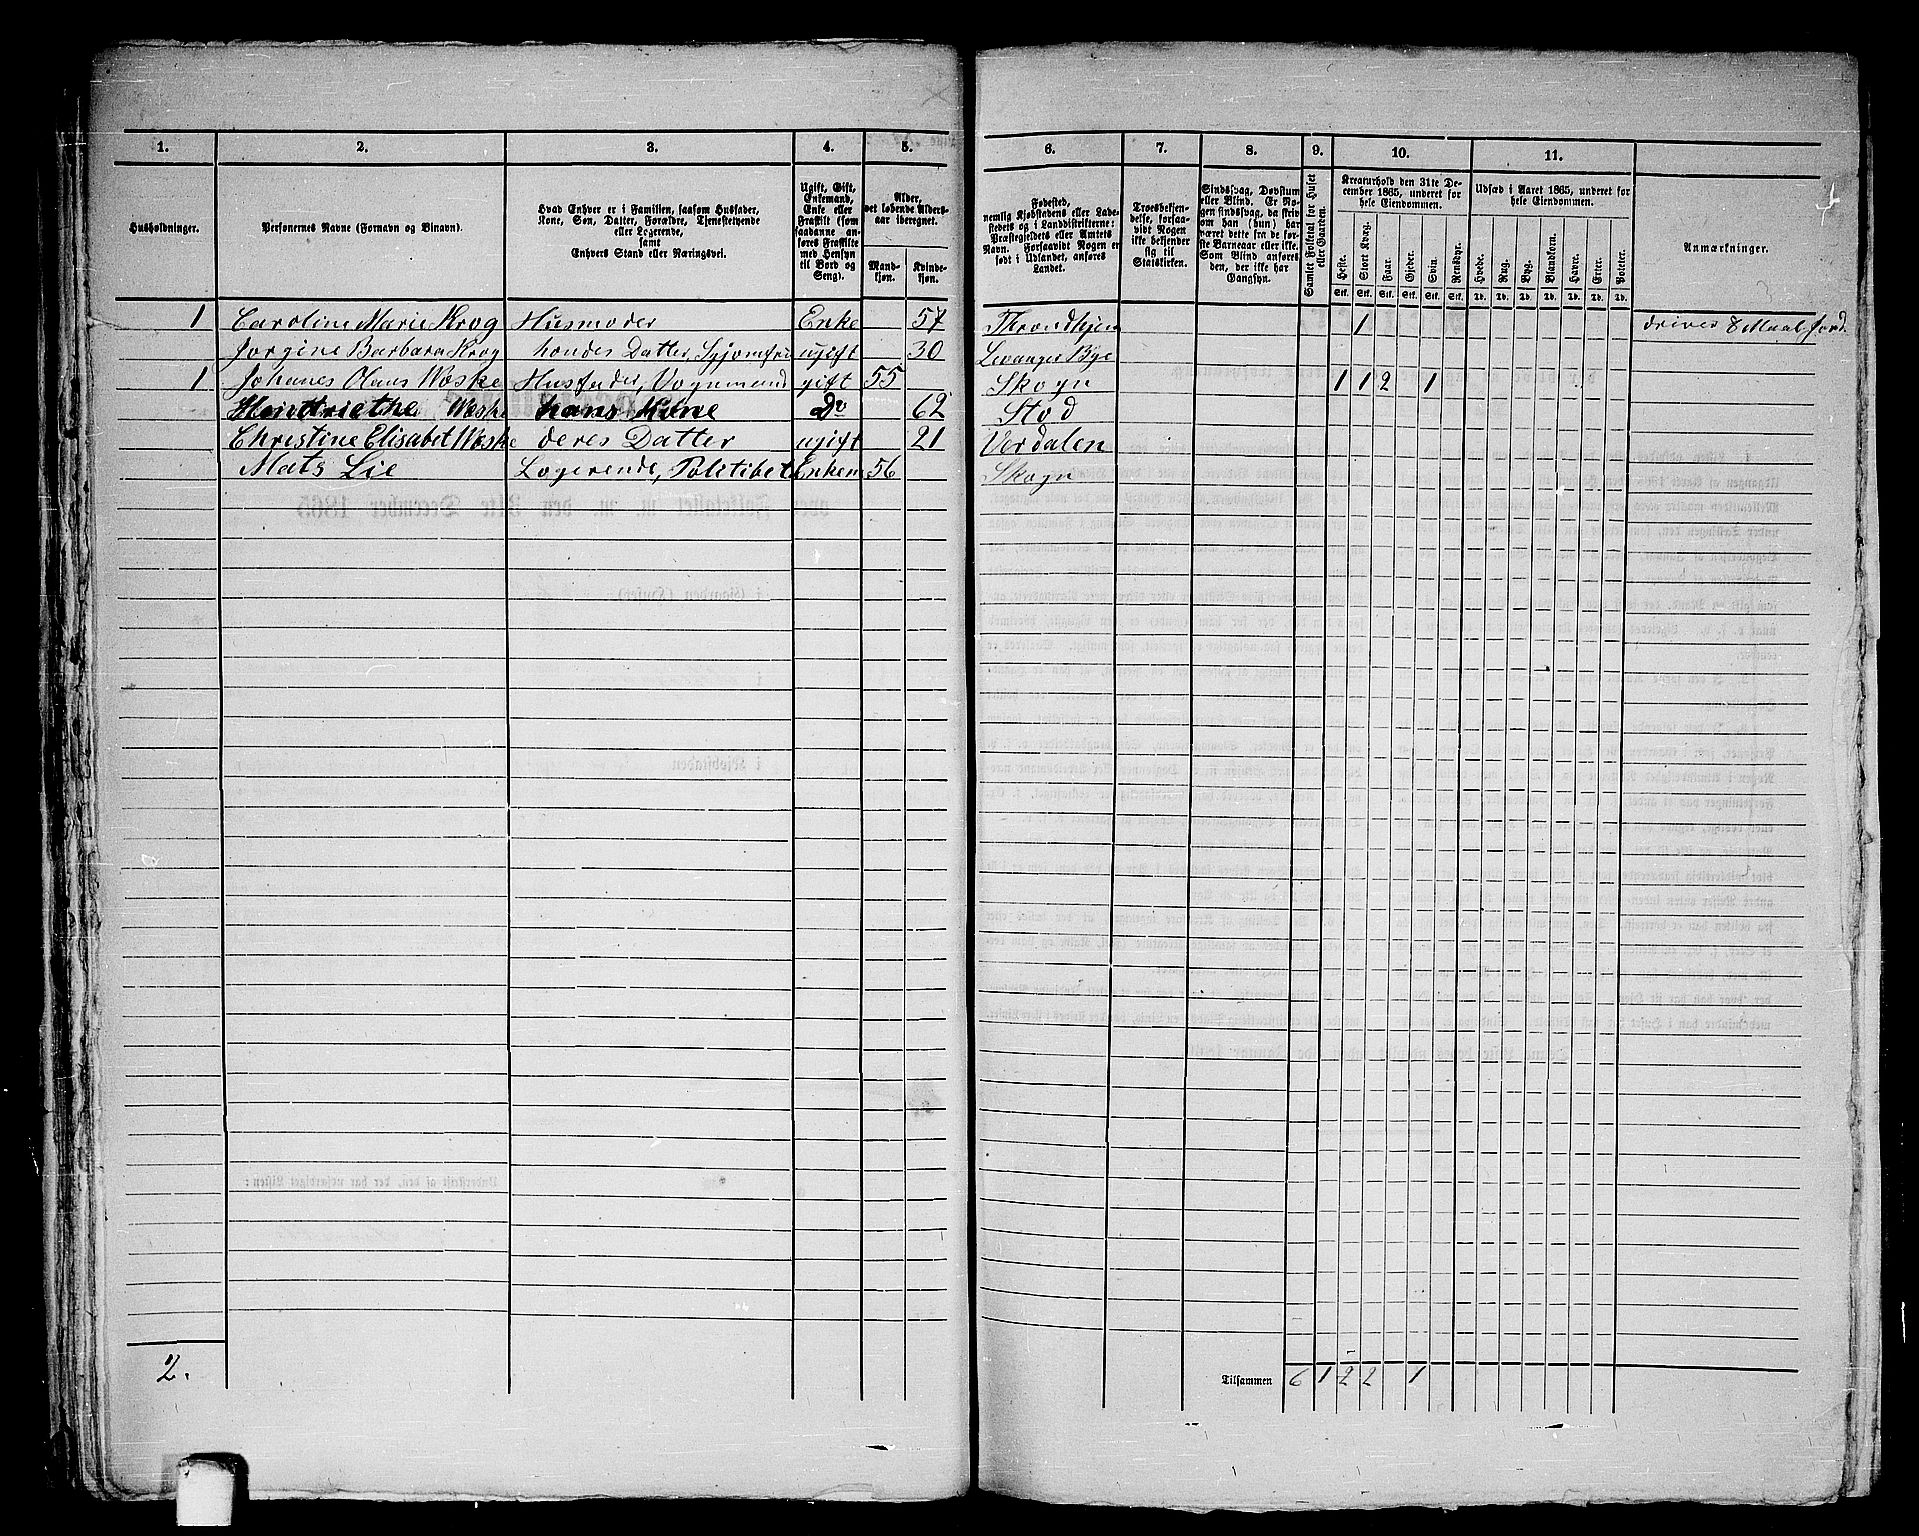 1. 2. 3. 4. 5. 6. 7. 8. 9. 10. 11.
Husholdninger.
Personernes Navne (Fornavn og Binavn).
Hvad Enhver er i Familien, saasom Husfader,
Kone, Søn, Datter, Forældre, Tjenestetyende
eller Logerende,
samt
Enhvers Stand eller Næringsvei.
Ugift, Gift,
Enkemand,
Enke eller
Fraskilt (som
saadanne an-
føres Fraskilte
med Hensyn
til Bord og
Seng).
Alder,
det løbende Alders-
aar iberegnet.
Mand-
kjøn.
Kvinde-
kjøn.
Fødested,
nemlig Kjøbstadens eller Lade-
stedets og i Landdistrikterne:
Præstegjeldets eller Amtets
Navn. Forsaavidt Nogen er
født i Udlandet, anføres
Landet.
Troesbekjen-
delse, forsaa-
vidt Nogen
ikke bekjender
sig til
Statskirken.
Sindssvag, Døvstum
eller Blind. Er No-
gen sindssvag, da skriv
om han (hun) har
været dette fra de før-
ste Barneaar eller ikke.
Som Blind anføres
den, der ikke har
Gangsyn.
Samlet Folketal for Huset
eller Gaarden.
Kreaturhold den 31te De-
cember 1865, underet for
hele Eiendommen.
Heste. Stort Kvæg. Faar. Gjeder. Svin. Rensdyr.
Stk. Stk. Stk. Stk. Stk. Stk.
Udsæd i Aaret 1865, underet for
hele Eiendommen.
Hvede. Rug. Byg. Blandkorn. Havre. Erter. Poteter.
Td. Td. Td. Td. Td. Td. Td.
Anmærkninger.
1 Caroline Marie Krog Husmoder Enke 57 Throndhjem 1 driver 8 Maal Jord
Jorgine Barbara Krog hendes Datter, Syjomfru ugift 30 Levanger Bye
1 Johanes Olaus Woske Husfader, Vognmand gift 55 Skogn 1 1 2 1
Hendriethe Woske hans Kone Do 62 Stod
Christine Elisabet Woske deres Datter ugift 21 Verdalen
Mats Lie Logerende, Politibet Enkem 56 Skogn
2.
Tilsammen 6 1 2 2 1